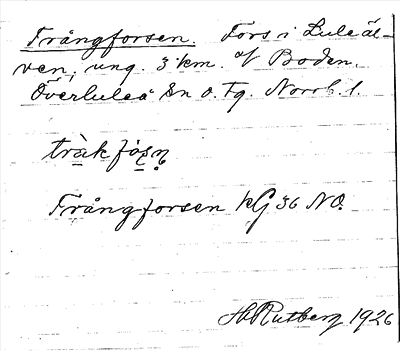 Trångforsen. Fors i Luleäl-
ven, ung. 3 km. af Boden.
Överluleå Sn o. Tg. Norrb. l.
tràk fåṣṇ
Trångforsen kG 36 NO.
H Rutberg 1926